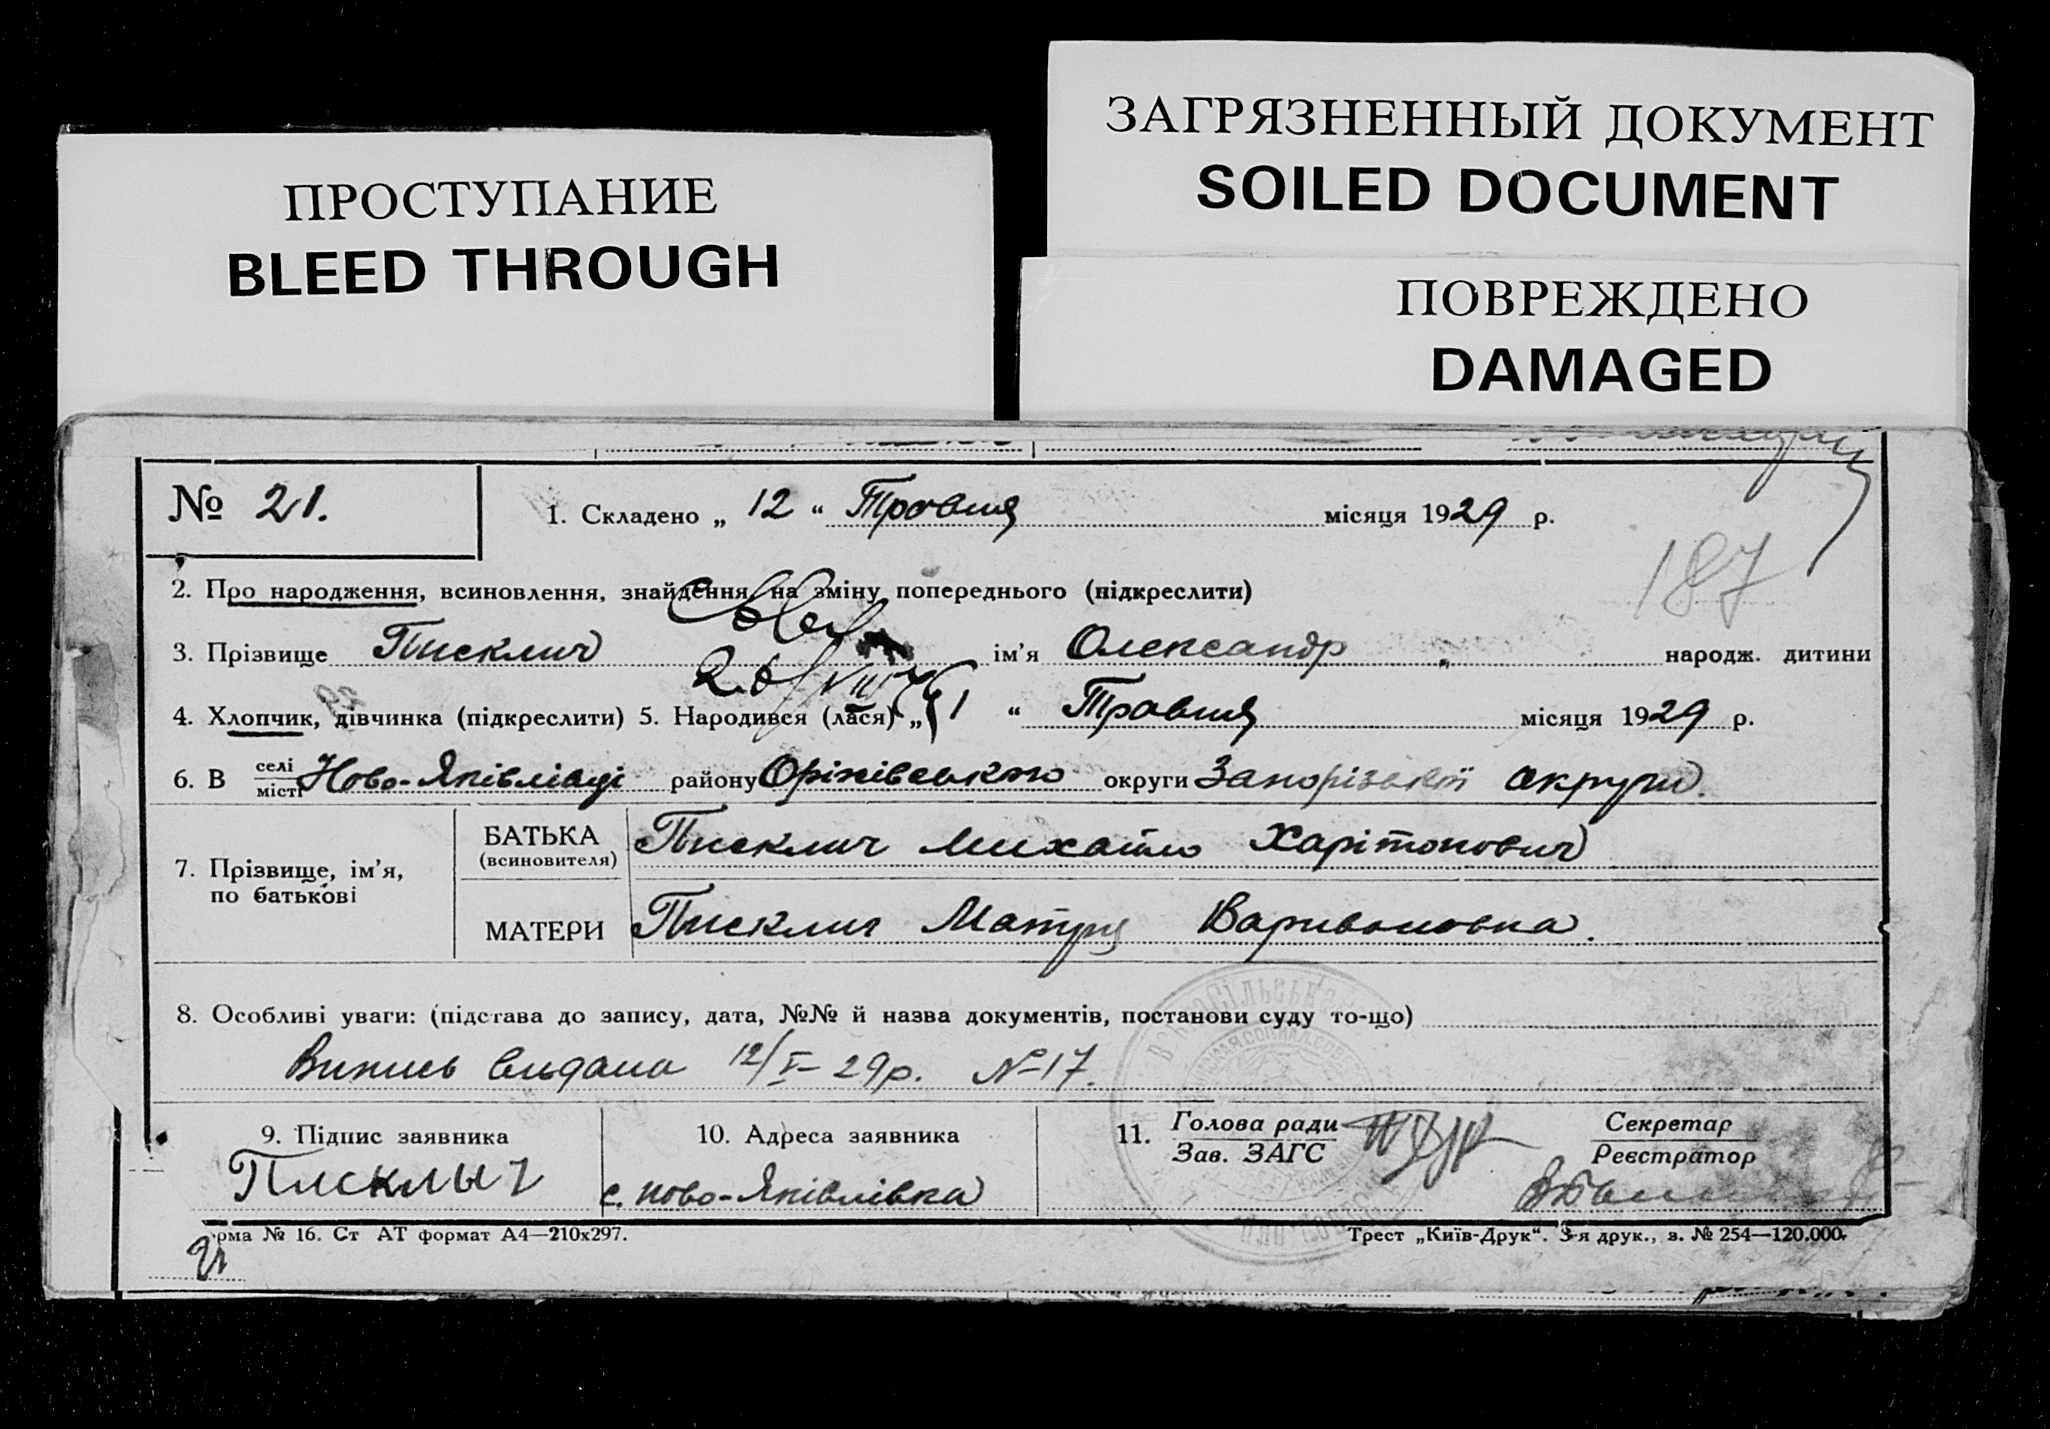 ЗАГРЯЗНЕННЫЙ ДОКУМЕНТ
SOILED DOCUMENT
ПРОСТУПАНИЕ
BLEED THROUGH
ПОВРЕЖДЕНО
DAMAGED
№ 21.
1. Складено „ 12 “ Травня місяця 1929 р.
187
2. Про народження, всиновлення, знайдення, на зміну попереднього (підкреслити)
3. Прізвище Писклич ім'я Олександр народж. дитини
4. Хлопчик, дівчинка (підкреслити) 5. Народився (лася) „ 1 “ Травня місяця 1929 р.
6. В селі місті Ново-Яківлівці району Оріхівського округи Запорізької округи.
7. Прізвище, ім'я, по батькові
БАТЬКА (всиновителя) Писклич Михайло Харітонович
МАТЕРИ Писклич Мотря Варивоновна.
8. Особливі уваги: (підстава до запису, дата, №№ й назва документів, постанови суду то-що)
Випись видана 12/V-29р. №17.
9. Підпис заявника
10. Адреса заявника
11. Голова ради Зав. ЗАГС
Секретар Реєстратор
Писклыч
с. Ново-Яківлівка
рма № 16. Ст АТ формат А4—210х297.
Трест „Київ-Друк“. 3-я друк., з. № 254—120.000.
21